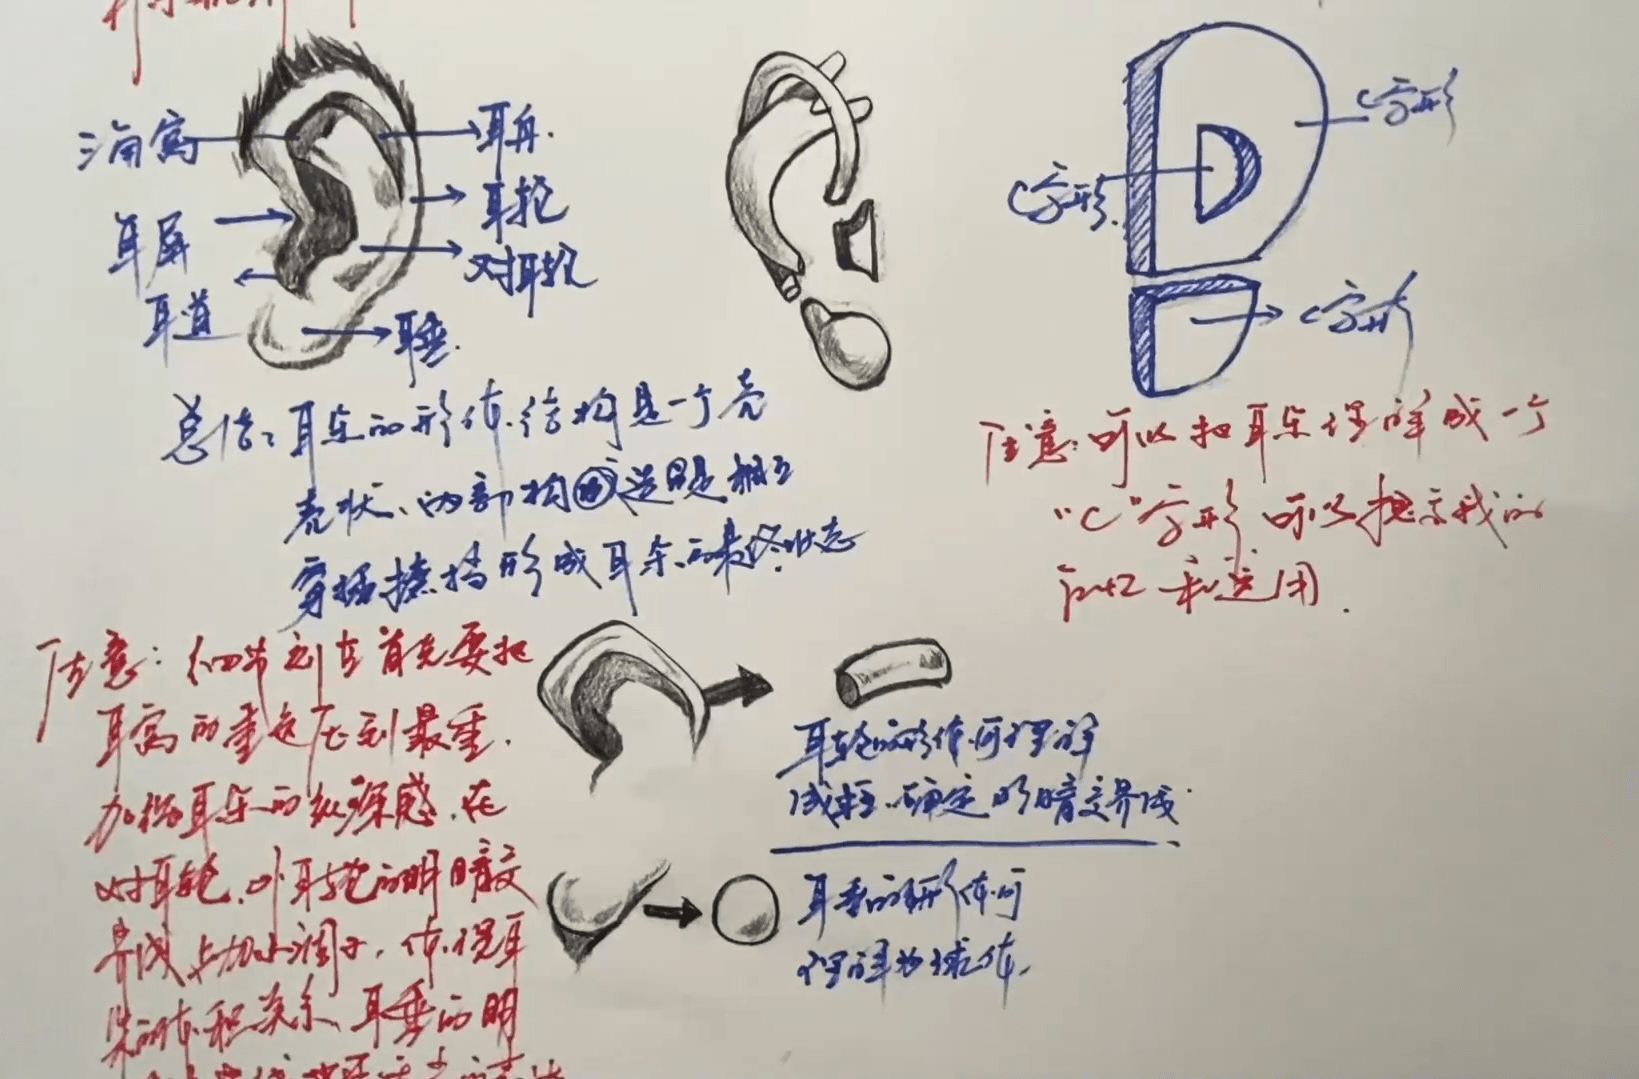 三角窝
耳舟.
耳屏
耳轮
对耳轮
耳道
耳垂.
C字形
C字形.
C字形
总结:耳朵的形体.结构是一个壳
壳状、内部构造是相互
穿插.遮挡形成耳朵的最终状态
注意:可以把耳朵理解成一个
"C"字形 可以提示我们
和运用.
注意:细节刻画首先要把
耳窝的重色压到最重.
加强耳朵的纵深感.在
对耳轮.外耳轮的明暗交
界线上加小调子.体现耳
朵的体积关系、耳垂的明
耳轮的形体可理解
成柱.确定明暗交界线.
耳垂的形体可
理解为球体.